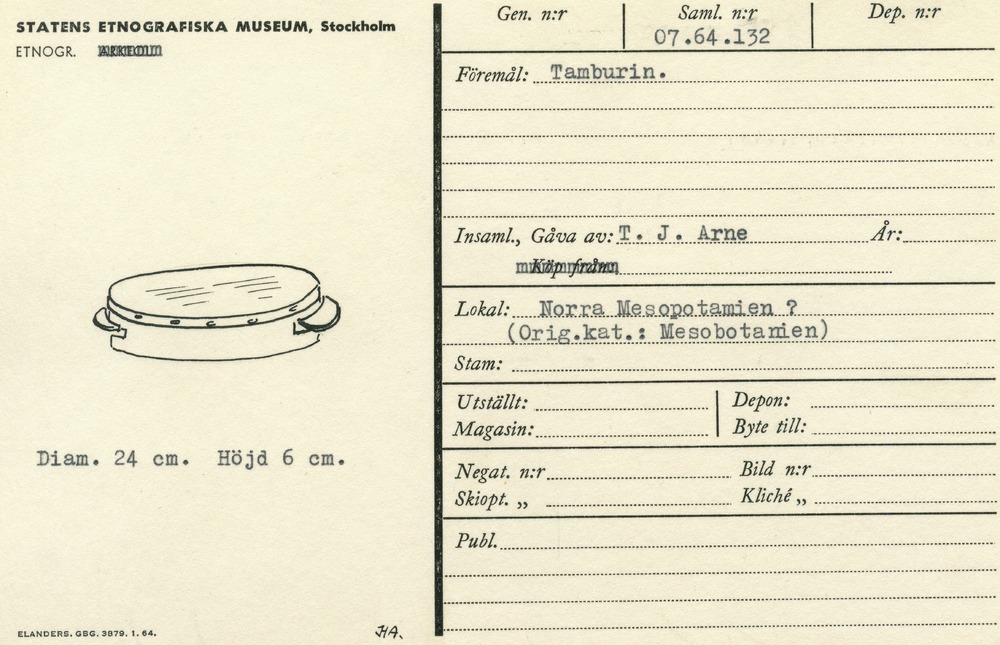 STATENS ETNOGRAFISKA MUSEUM, Stockholm
ETNOGR.
Diam. 24 cm. Höjd 6 cm.
ELANDERS. GBG. 3879. 1. 64.
HA.
Gen. n:r
Saml. n:r
07.64.132
Dep. n:r
Föremål: Tamburin.
Insaml., Gåva av: T. J. Arne År:
Köp från:
Lokal: Norra Mesopotamien ?
(Orig.kat.: Mesobotamien)
Stam:
Utställt: Depon:
Magasin: Byte till:
Negat. n:r Bild n:r
Skiopt. „ Kliché „
Publ.